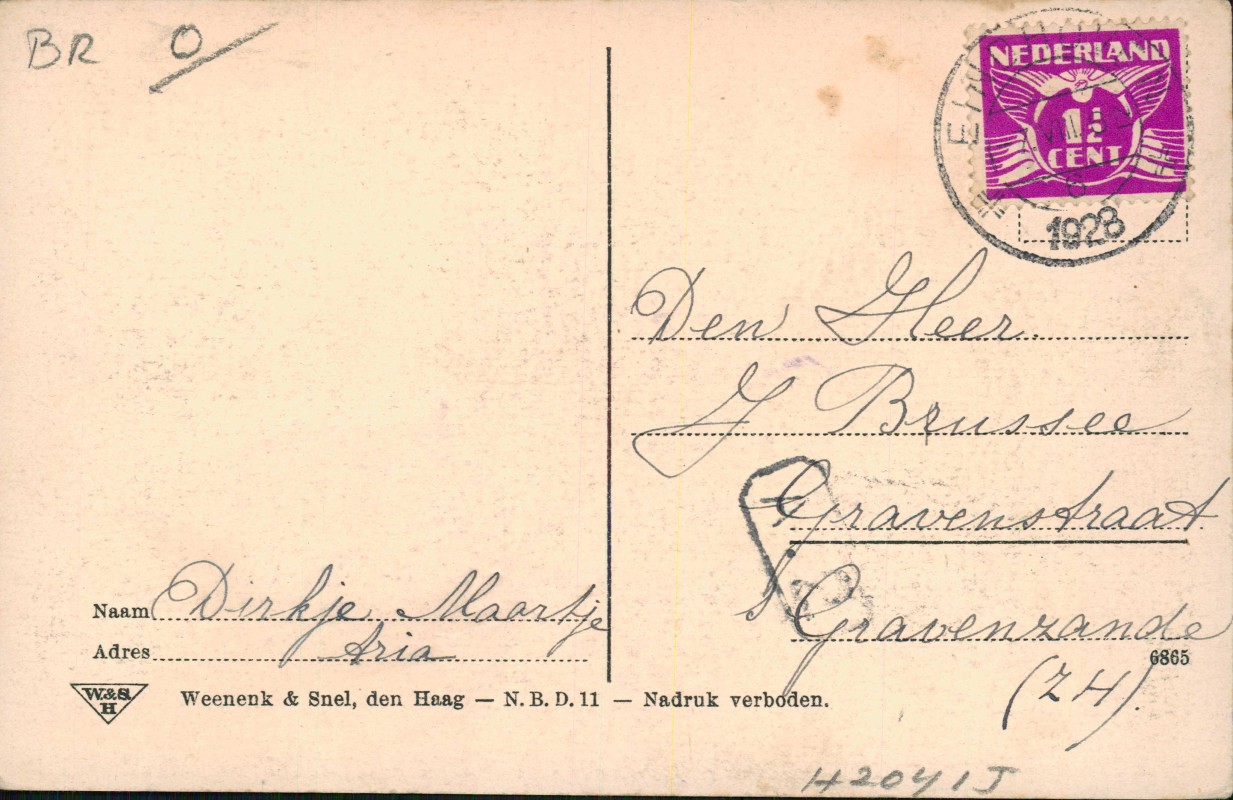 BR O
NEDERLAND
1½
CENT
VIII
6
1928
Den Heer.
J Brussee
Gravenstraat
's Gravenzande
(ZH).
6865
Naam Dirkje Maartje
Adres Aria
W.&S.
H
Weenenk & Snel, den Haag — N. B. D. 11 — Nadruk verboden.